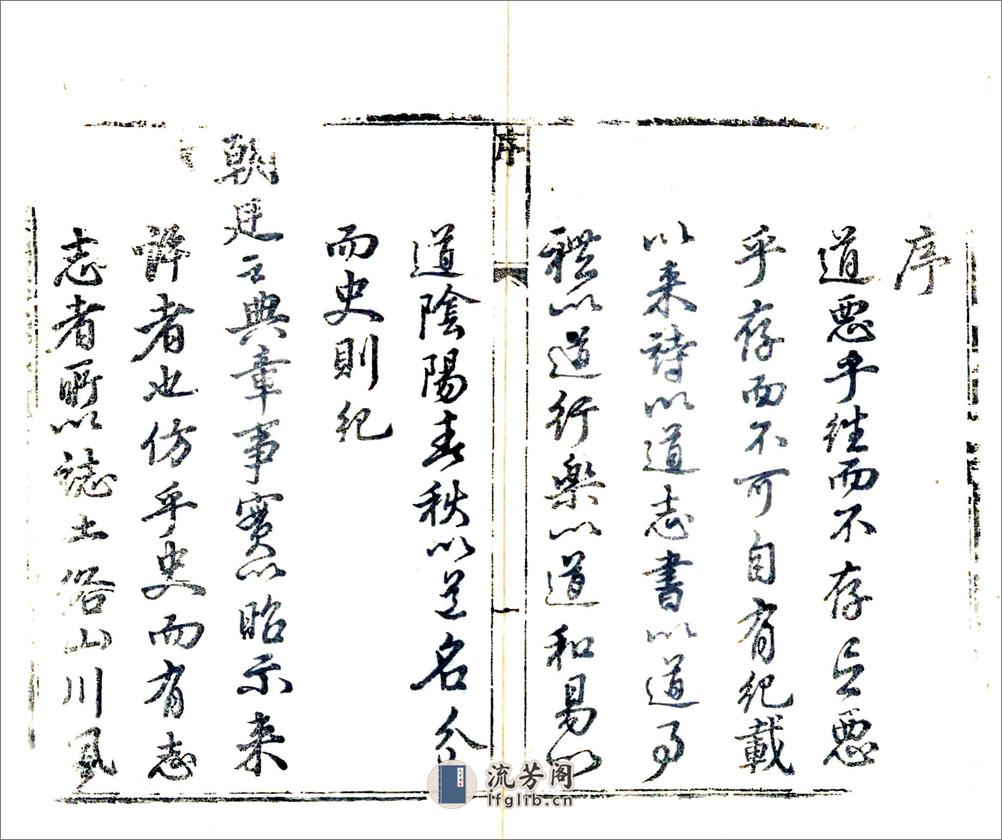 序
道惡乎往而不存言惡
乎存而不可自有紀載
以来詩以道志書以道事
禮以道行樂以道和易以
序
道陰陽春秋以道名分
而史則紀
朝廷之典章事實以昭示来
許者也仿乎史而有志
志者所以誌土俗山川風
流芳阁
lfglib.cn